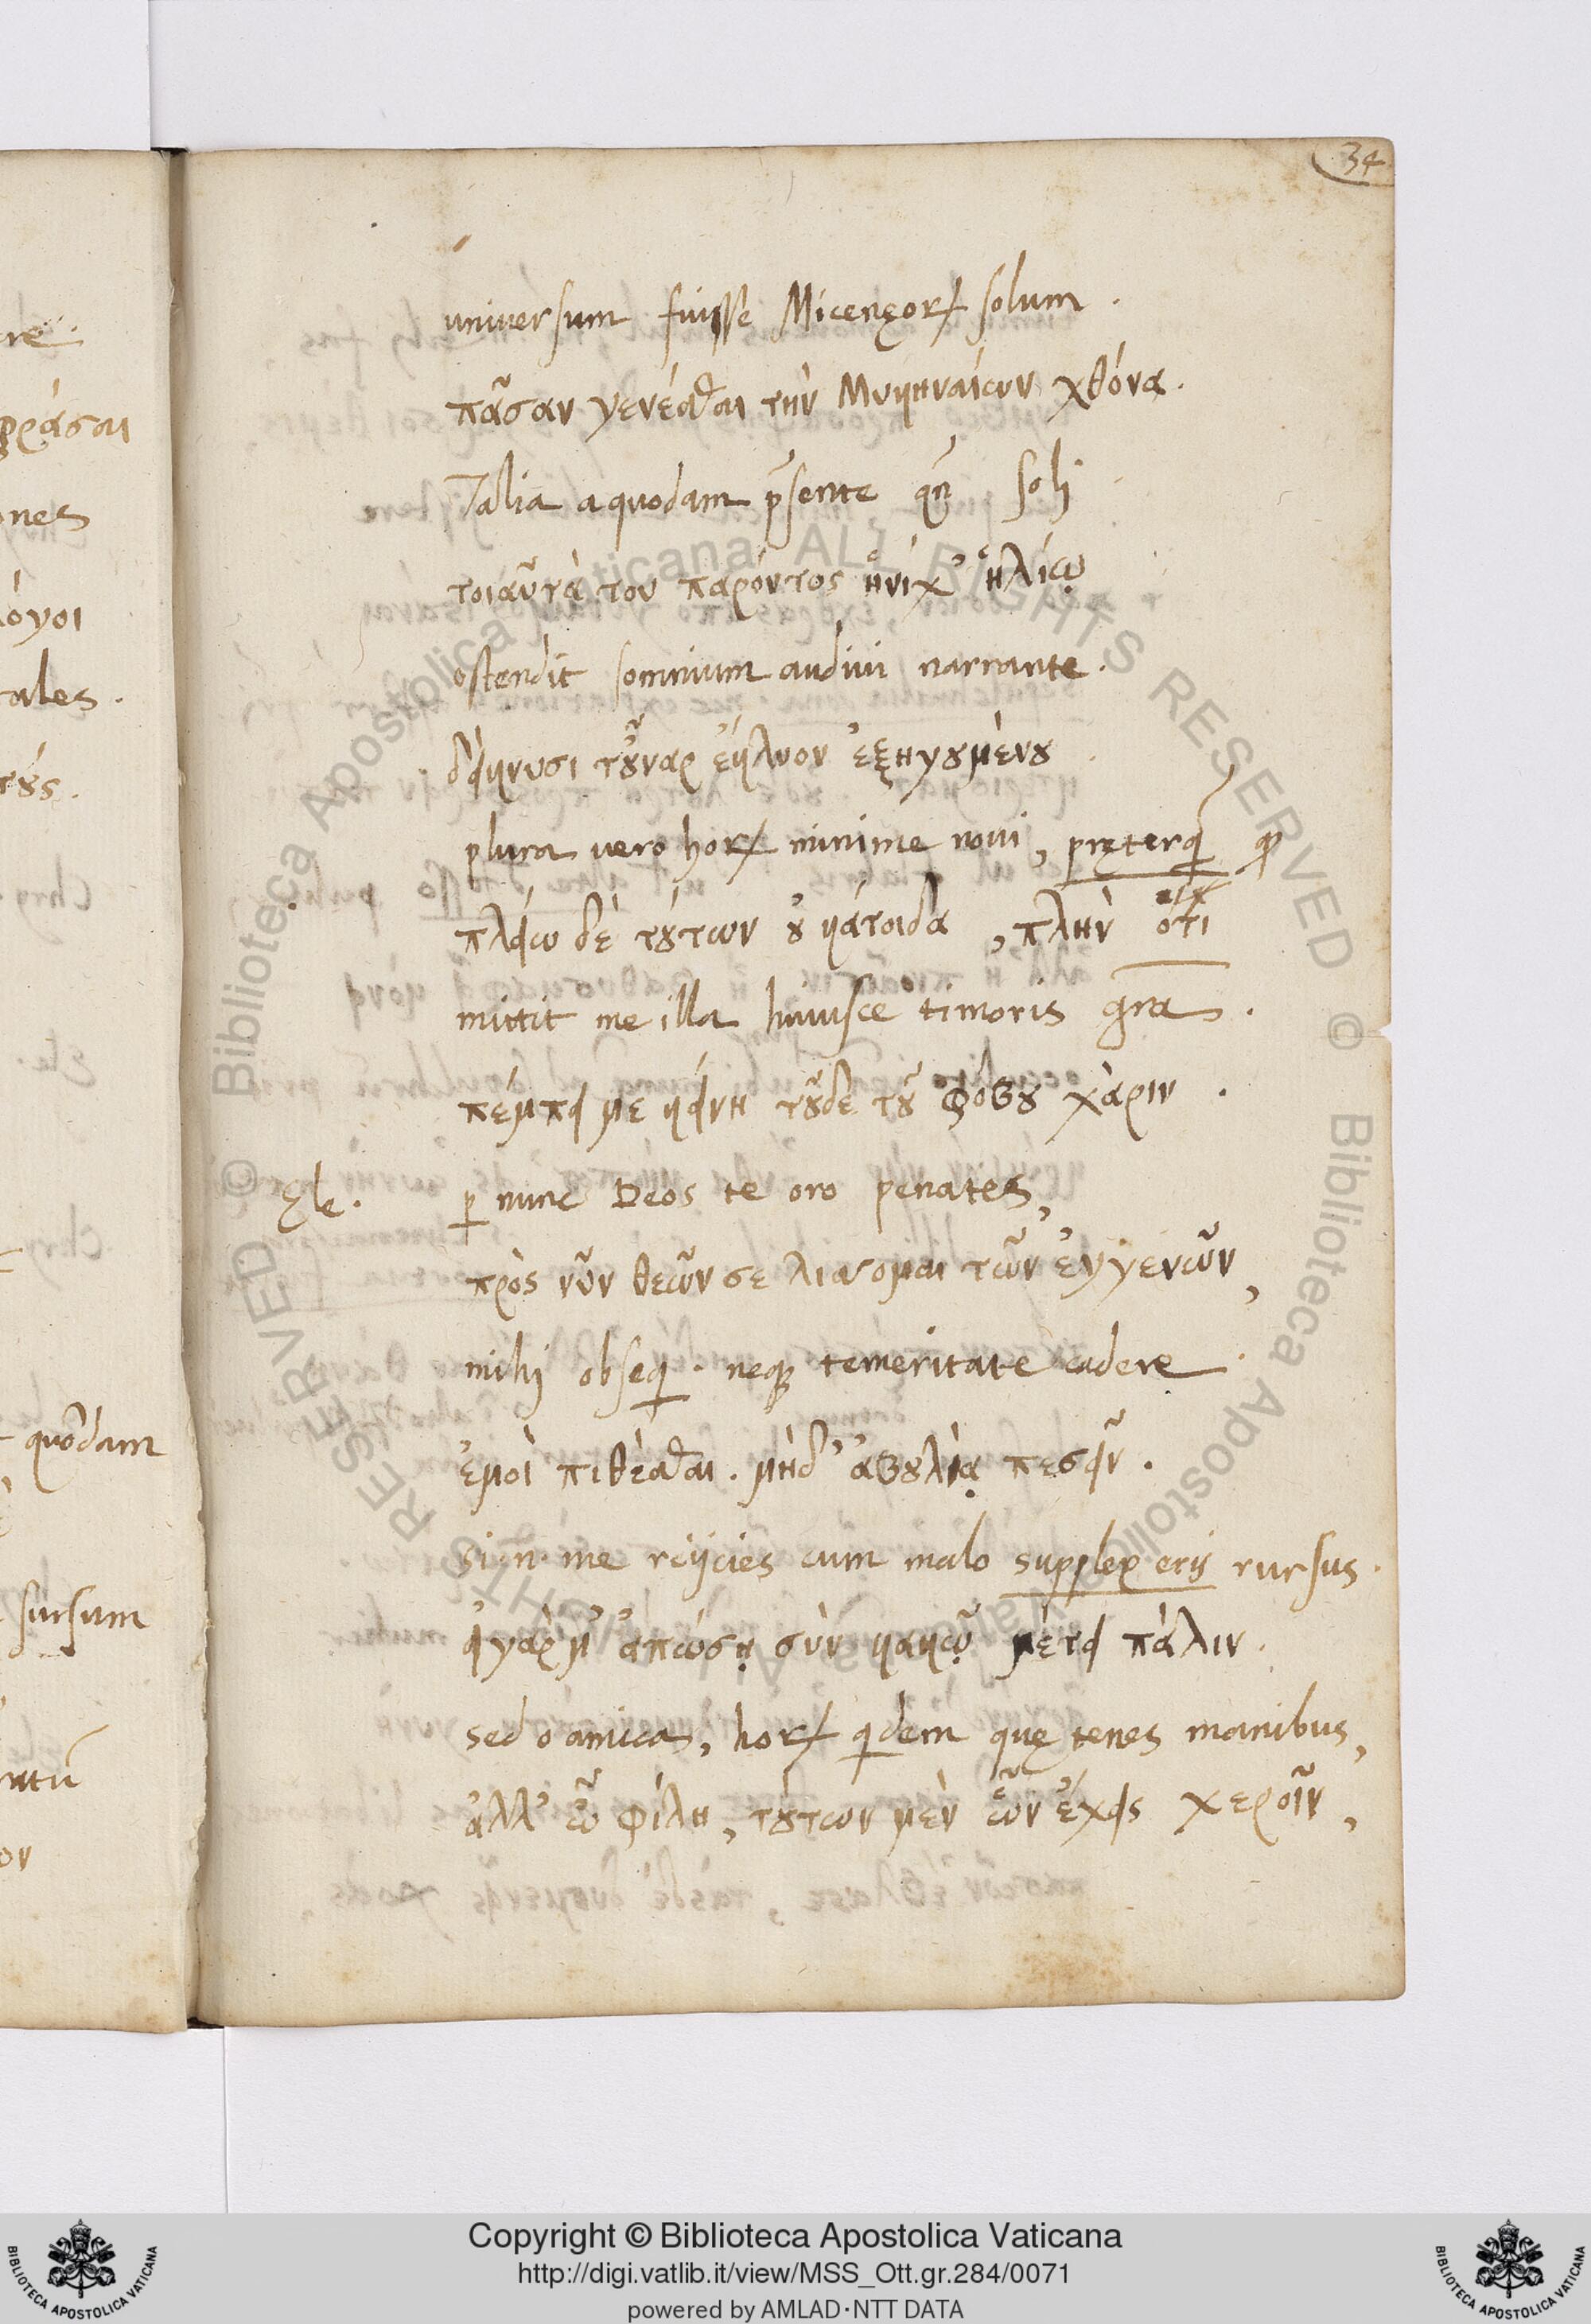 34
universum fuisse Micenęorꝝ solum .
πᾶσαν γενέσθαι τὴν Μυκηναίων χθόνα .
Talia a quodam p̄sente qn̄ soli
τοιαῦτά του παρόντος ἡνίχ' ἡλίῳ
ostendit somnium audivi narrante .
δείκνυσι τοὖναρ ἔκλυον ἐξηγουμένου
plura uero horꝝ minime novi , pręterq̄ ꝙ
πλείω δὲ τούτων οὐ κάτοιδα , πλὴν ὅτι
mittit me illa huiusce timoris gr̄a .
πέμπει με κείνη τοῦδε τοῦ φόβου χάριν .
Ele . ꝑ nunc Deos te oro penates ,
πρὸς νῦν θεῶν σε λίσσομαι τῶν ἐγγενῶν ,
mihi obseqi . neqꝫ temeritate cadere .
ἐμοὶ πιθέσθαι . μὴδ' ἀβουλίᾳ πεσεῖν .
si .n. me reijcies cum malo supplex eris rursus .
εἰ γάρ μ' ἀπώσῃ σὺν κακῷ μέτει πάλιν .
sed o amica , horꝝ qidem quę tenes manibus ,
ἀλλ' ὦ φίλη , τούτων μὲν ὧν ἔχεις χεροῖν ,
re .
φράσαι
ones
λόγοι
tales .
τούς .
quodam
sursum
ον
Copyright © Biblioteca Apostolica Vaticana
http://digi.vatlib.it/view/MSS_Ott.gr.284/0071
powered by AMLAD·NTT DATA
BIBLIOTECA APOSTOLICA VATICANA
BIBLIOTECA APOSTOLICA VATICANA
© Biblioteca Apostolica Vaticana ALL RIGHTS RESERVED
© Biblioteca Apostolica Vaticana ALL RIGHTS RESERVED